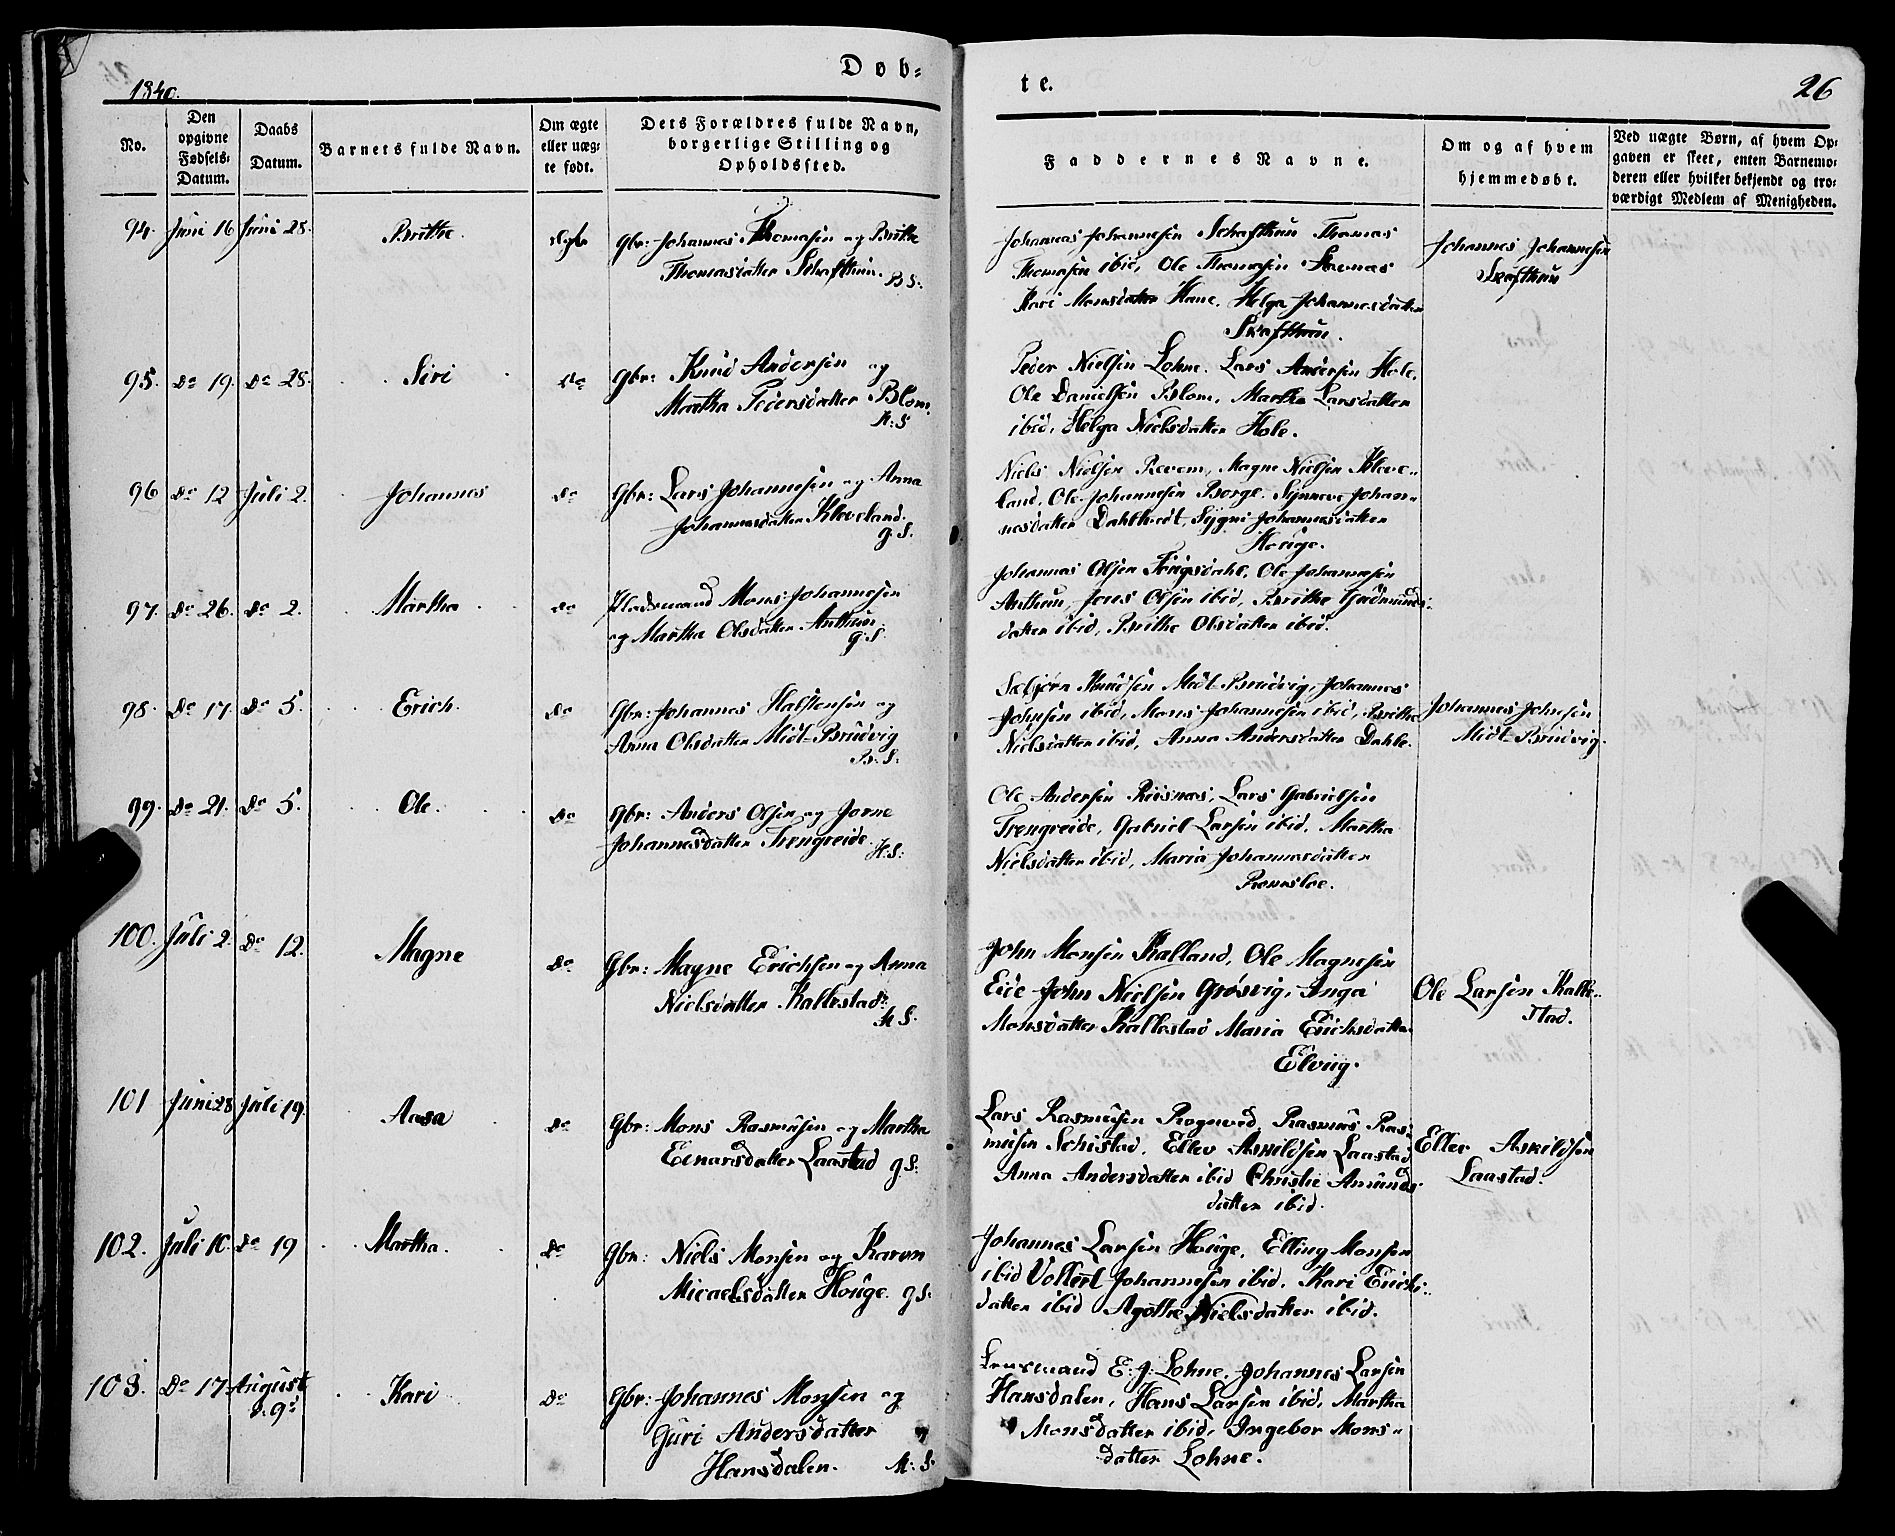 Døb=
te.
26
1840.
No.
Den
opgivne
Fødsels=
Datum.
Daabs
Datum.
Barnets fulde Navn.
Om ægte
eller uæg=
te født.
Dets Forældres fulde Navn,
borgerlige Stilling og
Opholdssted.
Faddernes Navne.
Om og af hvem
hjemmedøbt.
Ved uægte Børn, af hvem Op=
gaven er skeet, enten Barnemo=
deren eller hvilket bekjendt og tro=
værdigt Medlem af Menigheden.
94. Juni 16 Juni 28. Brithe ægte Gbr: Johannes Thomasen og Brithe
Thomasdatter Schafthun. B S.
Johannes Johannesen Schafthun Thomas
Thomasen ibid, Ole Thomasen
Kari Monsdatter Hane, Helga Johannesdatter
Skafthun.
Johannes Johannesen
Skafthun
95. Do 19. Do 28. Siri Do Gbr: Knud Andersen og
Martha Pedersdatter Blom.
H: S
Peder Nielsen Lohne. Lars Andersen Hole.
Ole Danielsen Blom, Martha Larsdatter
ibid, Helga Nielsdatter Hole.
96 Do 12 Juli 2. Johannes Do Gbr: Lars Johannesen og Anna
Johannesdatter Kleveland.
g. S.
Niels Nielsen Revem, Magne Nielsen Kleve-
land. Ole Johannesen Borge. Synneve Johan-
nesdatter Sygni Johannesdatter
Houge.
97. Do 26. Do 2. Martha Do Pladsmand Mons Johannesen
og Martha Olsdatter Anthun
g. S.
Johannes Olsen Ole Johannesen
Anthun, Jens Olsen ibid, Brithe Gudmunds-
datter ibid, Brithe Olsdatter ibid.
98. Do 17. Do 5. Erich. Do Gbr: Johannes Halstensen og
Anna Olsdatter Midt-Brudvig
B: S.
Knudsen Midt-Brudvig, Johannes
Johnsen ibid, Mons Johannesen ibid, Brithe
Nielsdatter ibid, Anna Andersdatter Dahle.
Johannes Johnsen
Midt-Brudvig.
99. Do 21. Do 5. Ole. Do Gbr: Anders Olsen og Jorne
Johannesdatter Trengreide. H. S:
Ole Andersen Riisnæs, Lars Gabrielsen
Trengreide, Gabriel Larsen ibid, Martha
Nielsdatter ibid, Maria Johannesdatter
Romsloe.
100. Juli 2. Do 12. Magne Do Gbr: Magne Erichsen og Anna
Nielsdatter Kallestad.
H S.
John Monsen Kalland, Ole Magnesen
Eide John Nielsen Grøsvig, Inga
Monsdatter Kallestad Maria Erichsdatter
Elviig.
Ole Larsen Kalle-
stad.
101 Juni 28 Juli 19. Aasa Do Gbr: Mons Rasmusen og Martha
Einarsdatter Laastad g. S.
Lars Rasmusen Rogned, Rasmus Ras-
musen Schistad. Ellev Askildsen Laastad
Anna Andersdatter ibid Christie Amunds-
datter ibid.
Ellev Askildsen
Laastad.
102. Juli 10. Do 19 Martha. Do Gbr: Niels Monsen og Karen
Micaelsdatter Houge. g S.
Johannes Larsen Houge, Elling Monsen
ibid Vollert Johannesen ibid. Kari Erichs-
datter ibid Agothe Nielsdatter ibid.
103. Do 17. August 9de Kari Do Gbr: Johannes Monsen og
Guri Andersdatter
Hansdalen. H: S.
Lensmand E: J: Lohne. Johannes Larsen
Hansdalen, Hans Larsen ibid, Martha
Monsdatter ibid, Ingebor Mons-
datter Lohne.